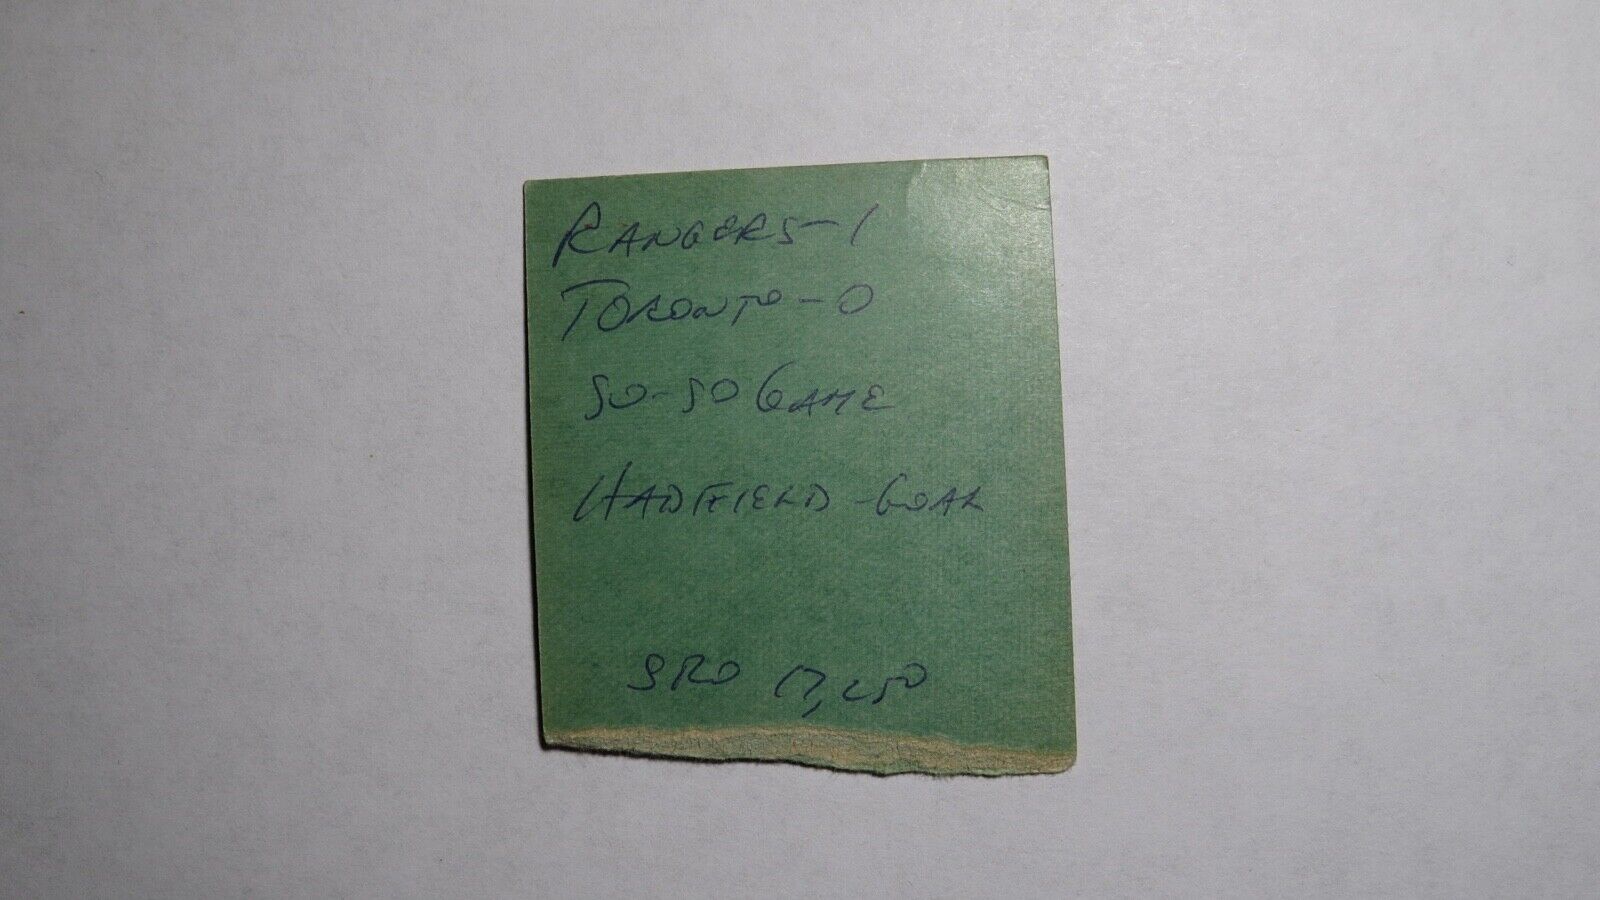 RANGERS-1
TORONTO-0
SO-SO GAME
HADFIELD-GOAL
SRO 17,250